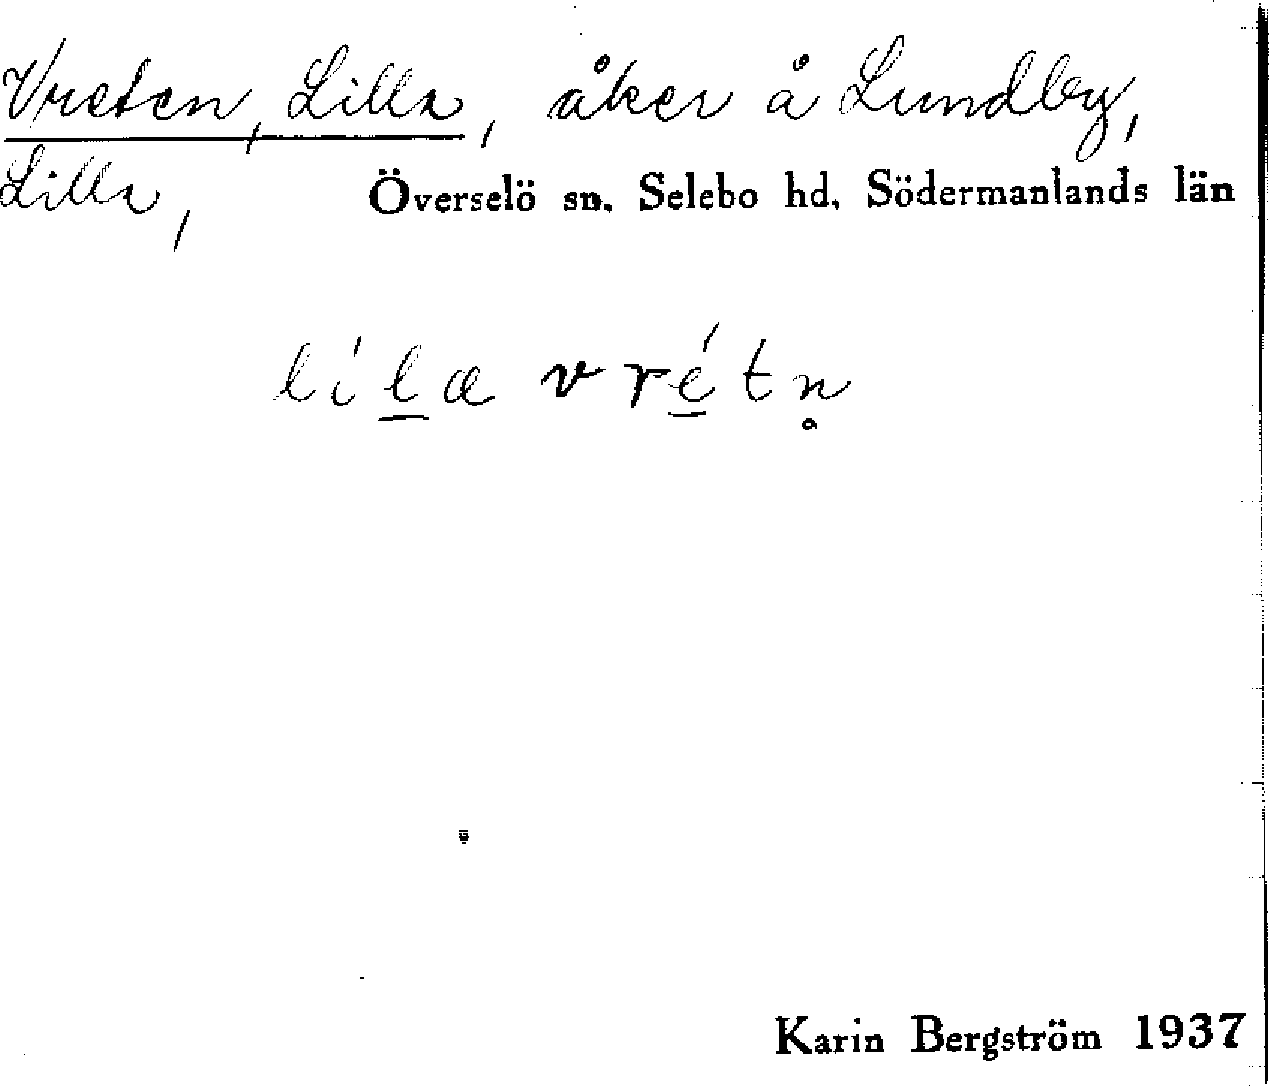 Vreten, Lilla, åker å Lundby,
Lilla, Överselö sn. Selebo hd. Södermanlands län
líl̲a vré̲tn̥
Karin Bergström 1937